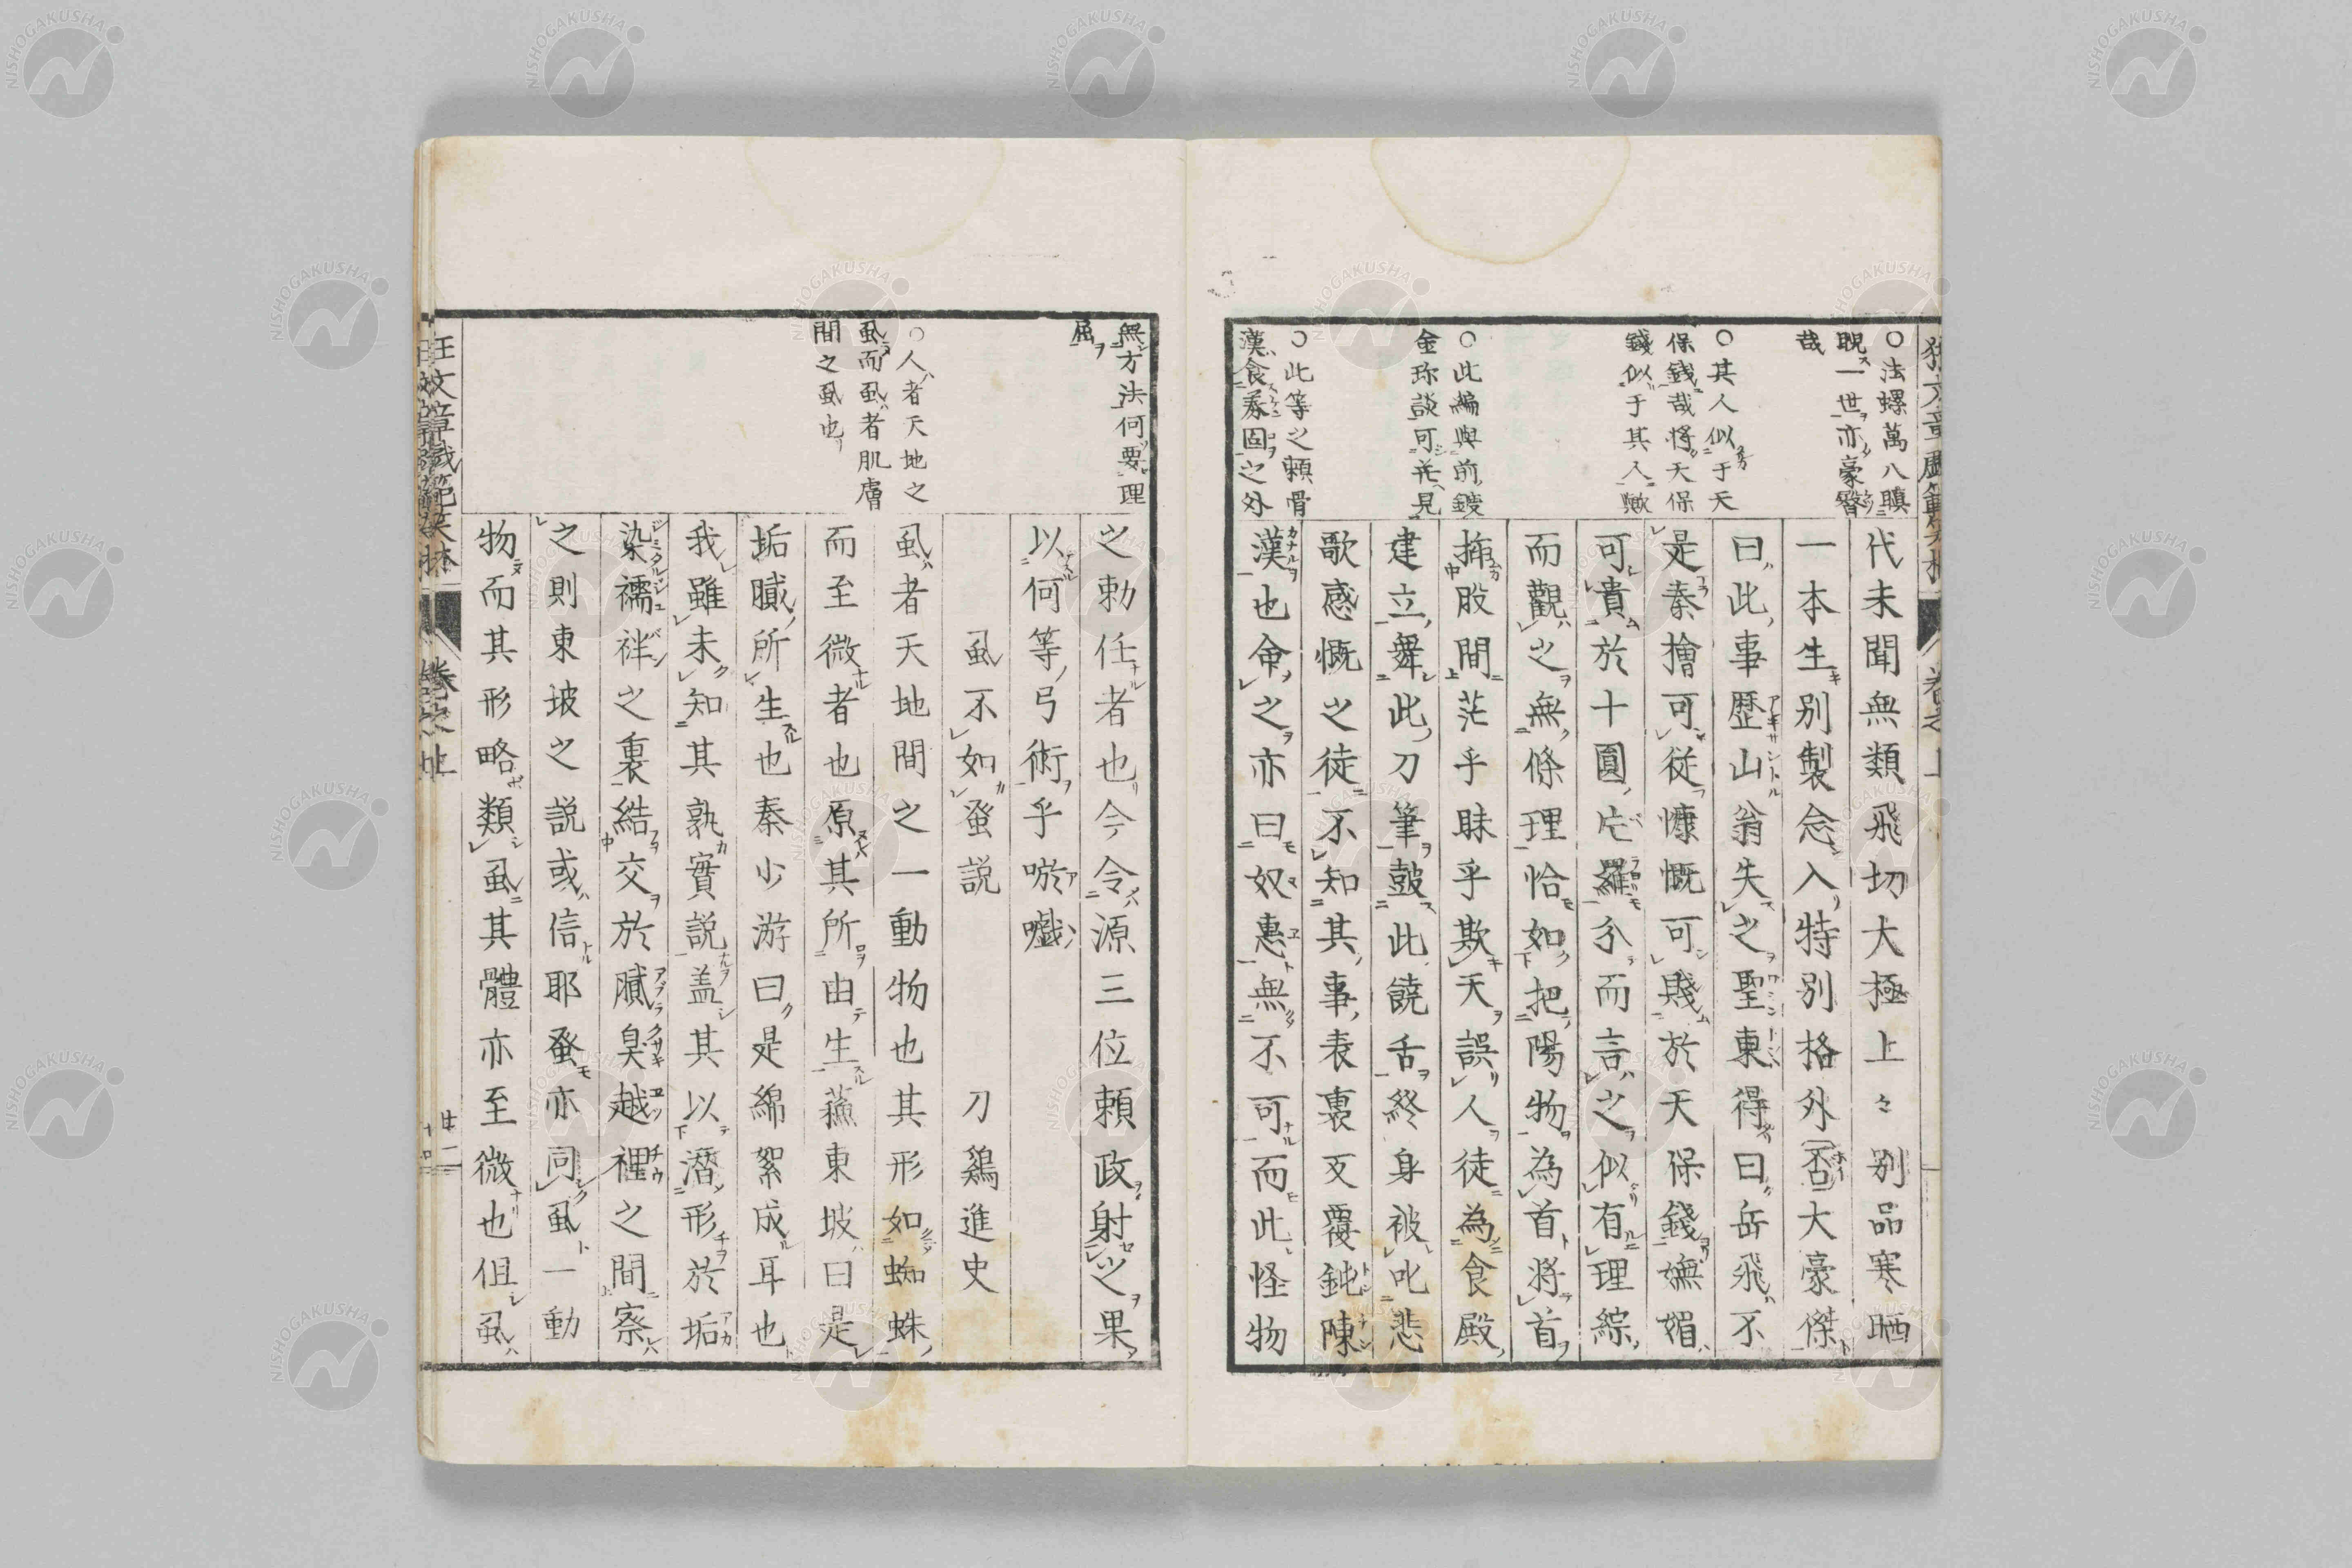 ○法螺萬八瞋
睨一世亦豪朁
哉
○其人似于天
保錢哉将天保
錢似于其人歟
○此編與前鍍
金珎談可并見
○此等之頼骨
漢食豕固之外
代未聞無類飛切大極上々別品寒晒
一本生別製念入特別格外否大豪傑
曰此事歴山翁失之聖東得曰岳飛不
是秦檜可従慷慨可賤於天保錢嫵媚
可貴於十圓片羅分而言之似有理綜
而觀之無條理恰如把陽物為首将首
揷股間茫乎昧乎欺天誤人徒為食殿
建立舞此刀筆皷此饒舌終身被叱悲
歌感慨之徒不知其事表裏反覆鈍陳
漢也命之亦曰奴惠無不可而此怪物
無方法何要理
屈
○人者天地之
虱而虱者肌膚
間之虱也
之勅任者也今令源三位頼政射之果
以何等弓術乎唹嚱
虱不如蚤説 刀鷄進史
虱者天地間之一動物也其形如蜘蛛
而至微者也原其所由生蘓東坡曰是
垢膩所生也秦少游曰是綿絮成耳也
我雖未知其孰實説盖其以潜形於垢
染襦袢之裏結交於膩臭越裡之間察
之則東坡之説或信耶蚤亦同虱一動
物而其形略類虱其體亦至微也但虱
狂文章戯範笑抹 卷之上